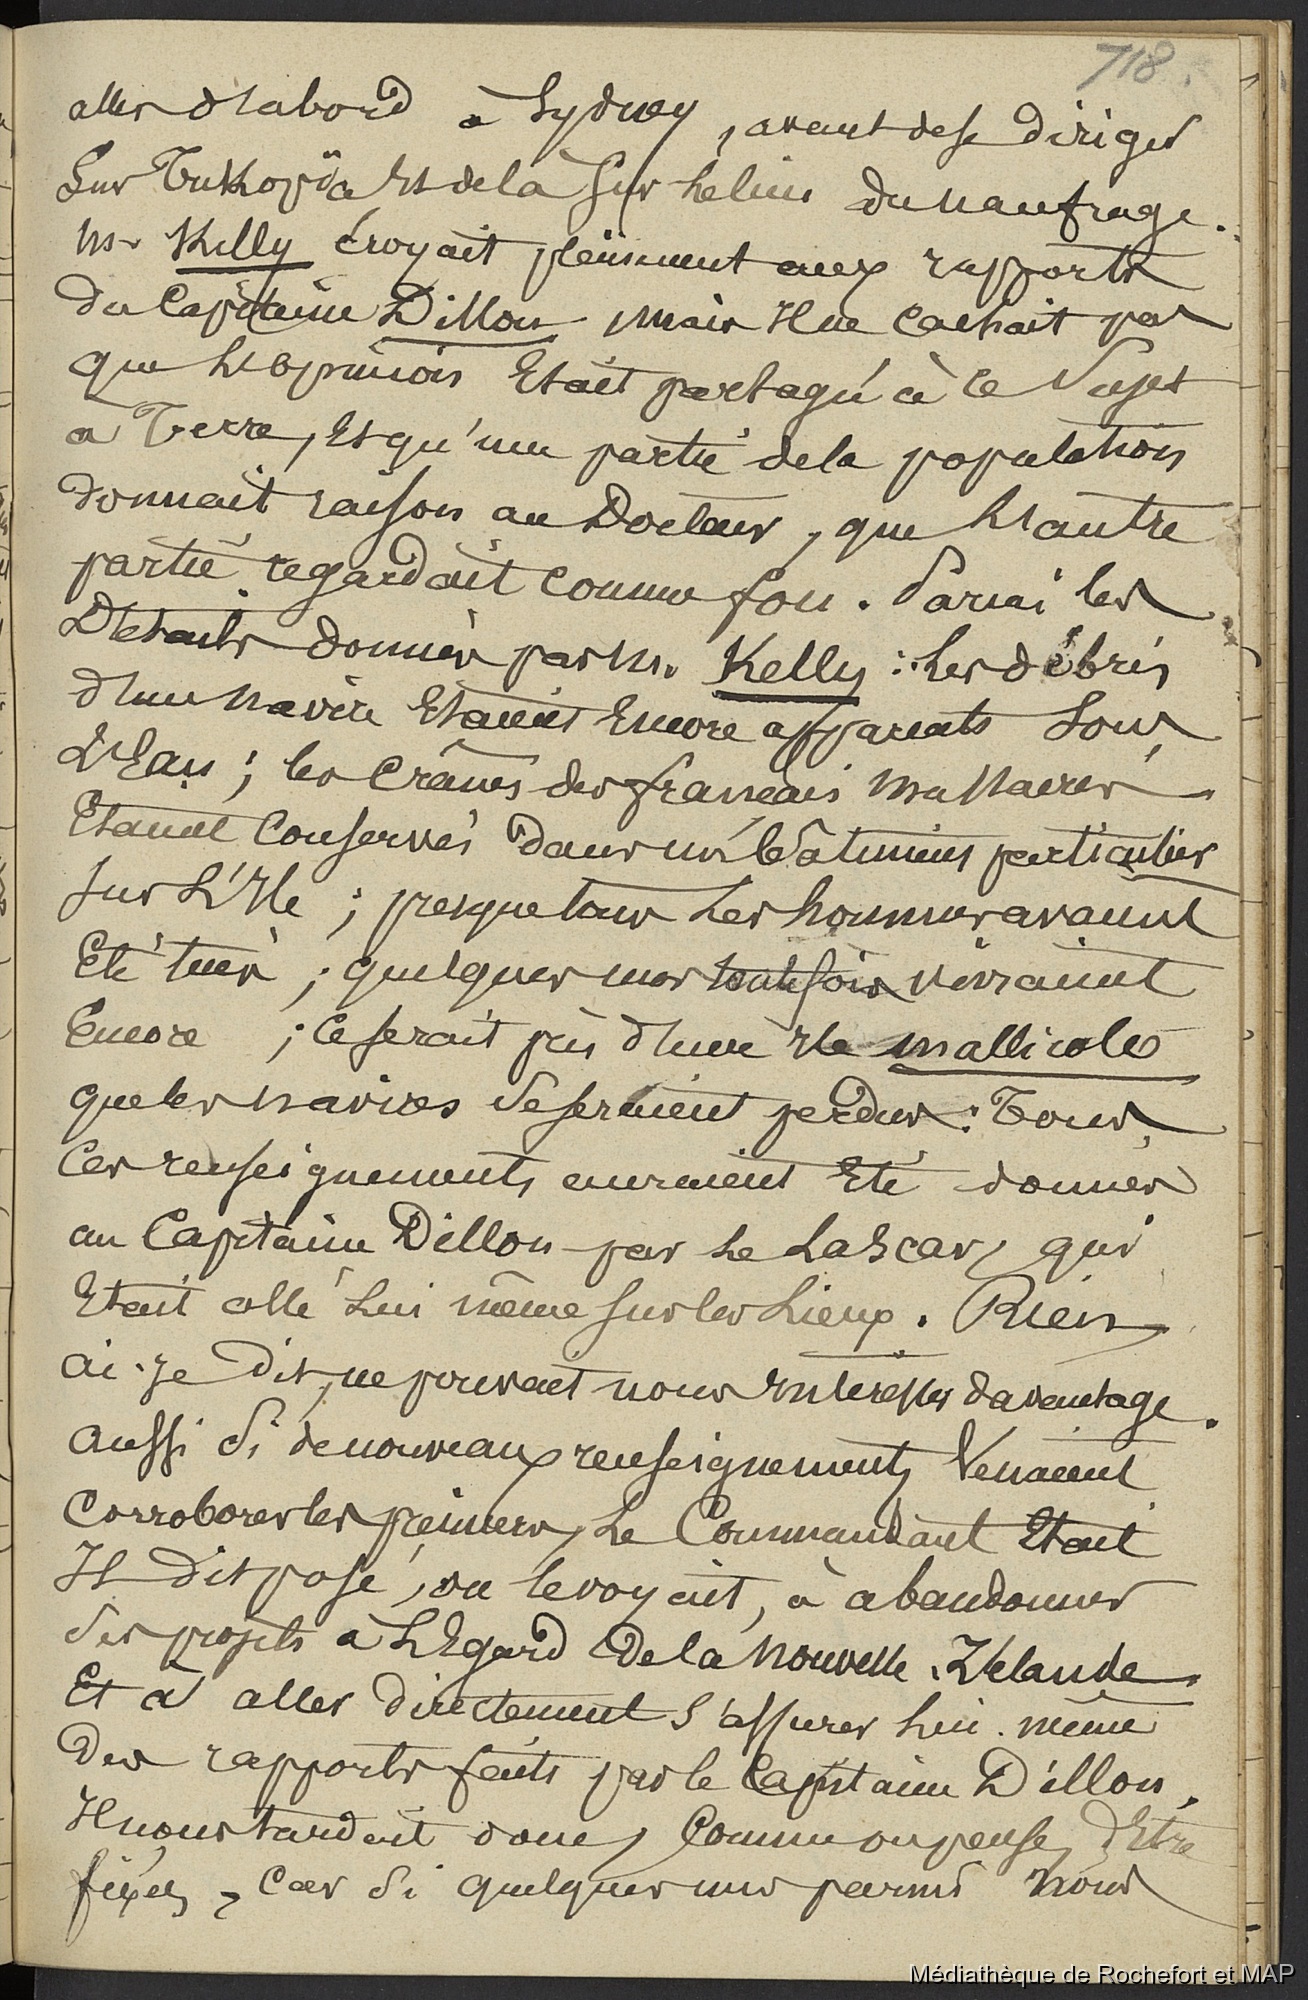 718.
aller d'abord à Sydney, avant de se diriger
Sur Tukopïa Et de là Sur le lieu du naufrage.
Mr Kelly croyait pleinement aux rapports
du Capitaine Dillon, mais Il ne cachait pas
que L'opinion Etait partagée à ce Sujet
à Terre, Et qu'une partie de la population
donnait raison au Docteur, que L'autre
partie regardait comme fou. Parmi les
Détails donnés par M. Kelly : Les débris
d'un navire Etaient Encore apparents Sous
L'Eau ; les crânes des français massacrés
Etaient Conservés dans un bâtiment particulier
Sur L'Ile ; presque tous Les hommes avaient
Eté tués ; quelques uns toutefois vivraient
Encore ; ce serait près d'une Ile Mallicolo
que les navires Se seraient perdus : Tous
Ces renseignements auraient Eté donnés
au Capitaine Dillon par Le Lascar, qui
Etait allé Lui même sur les Lieux. Rien
ai-je Dit, ne pouvait nous Intéresser davantage.
Aussi Si de nouveaux renseignements Venaient
Corroborer les premiers, Le Commandant Etait
Il disposé, on le voyait, à abandonner
Ses projets à L'Egard de la Nouvelle-Zélande
Et à aller directement S'assurer Lui-même
Des rapports faits par le Capitaine Dillon.
Il nous tardait donc, Comme on pense, d'Etre
fixés, Car Si quelques uns parmi Nous
Médiathèque de Rochefort et MAP